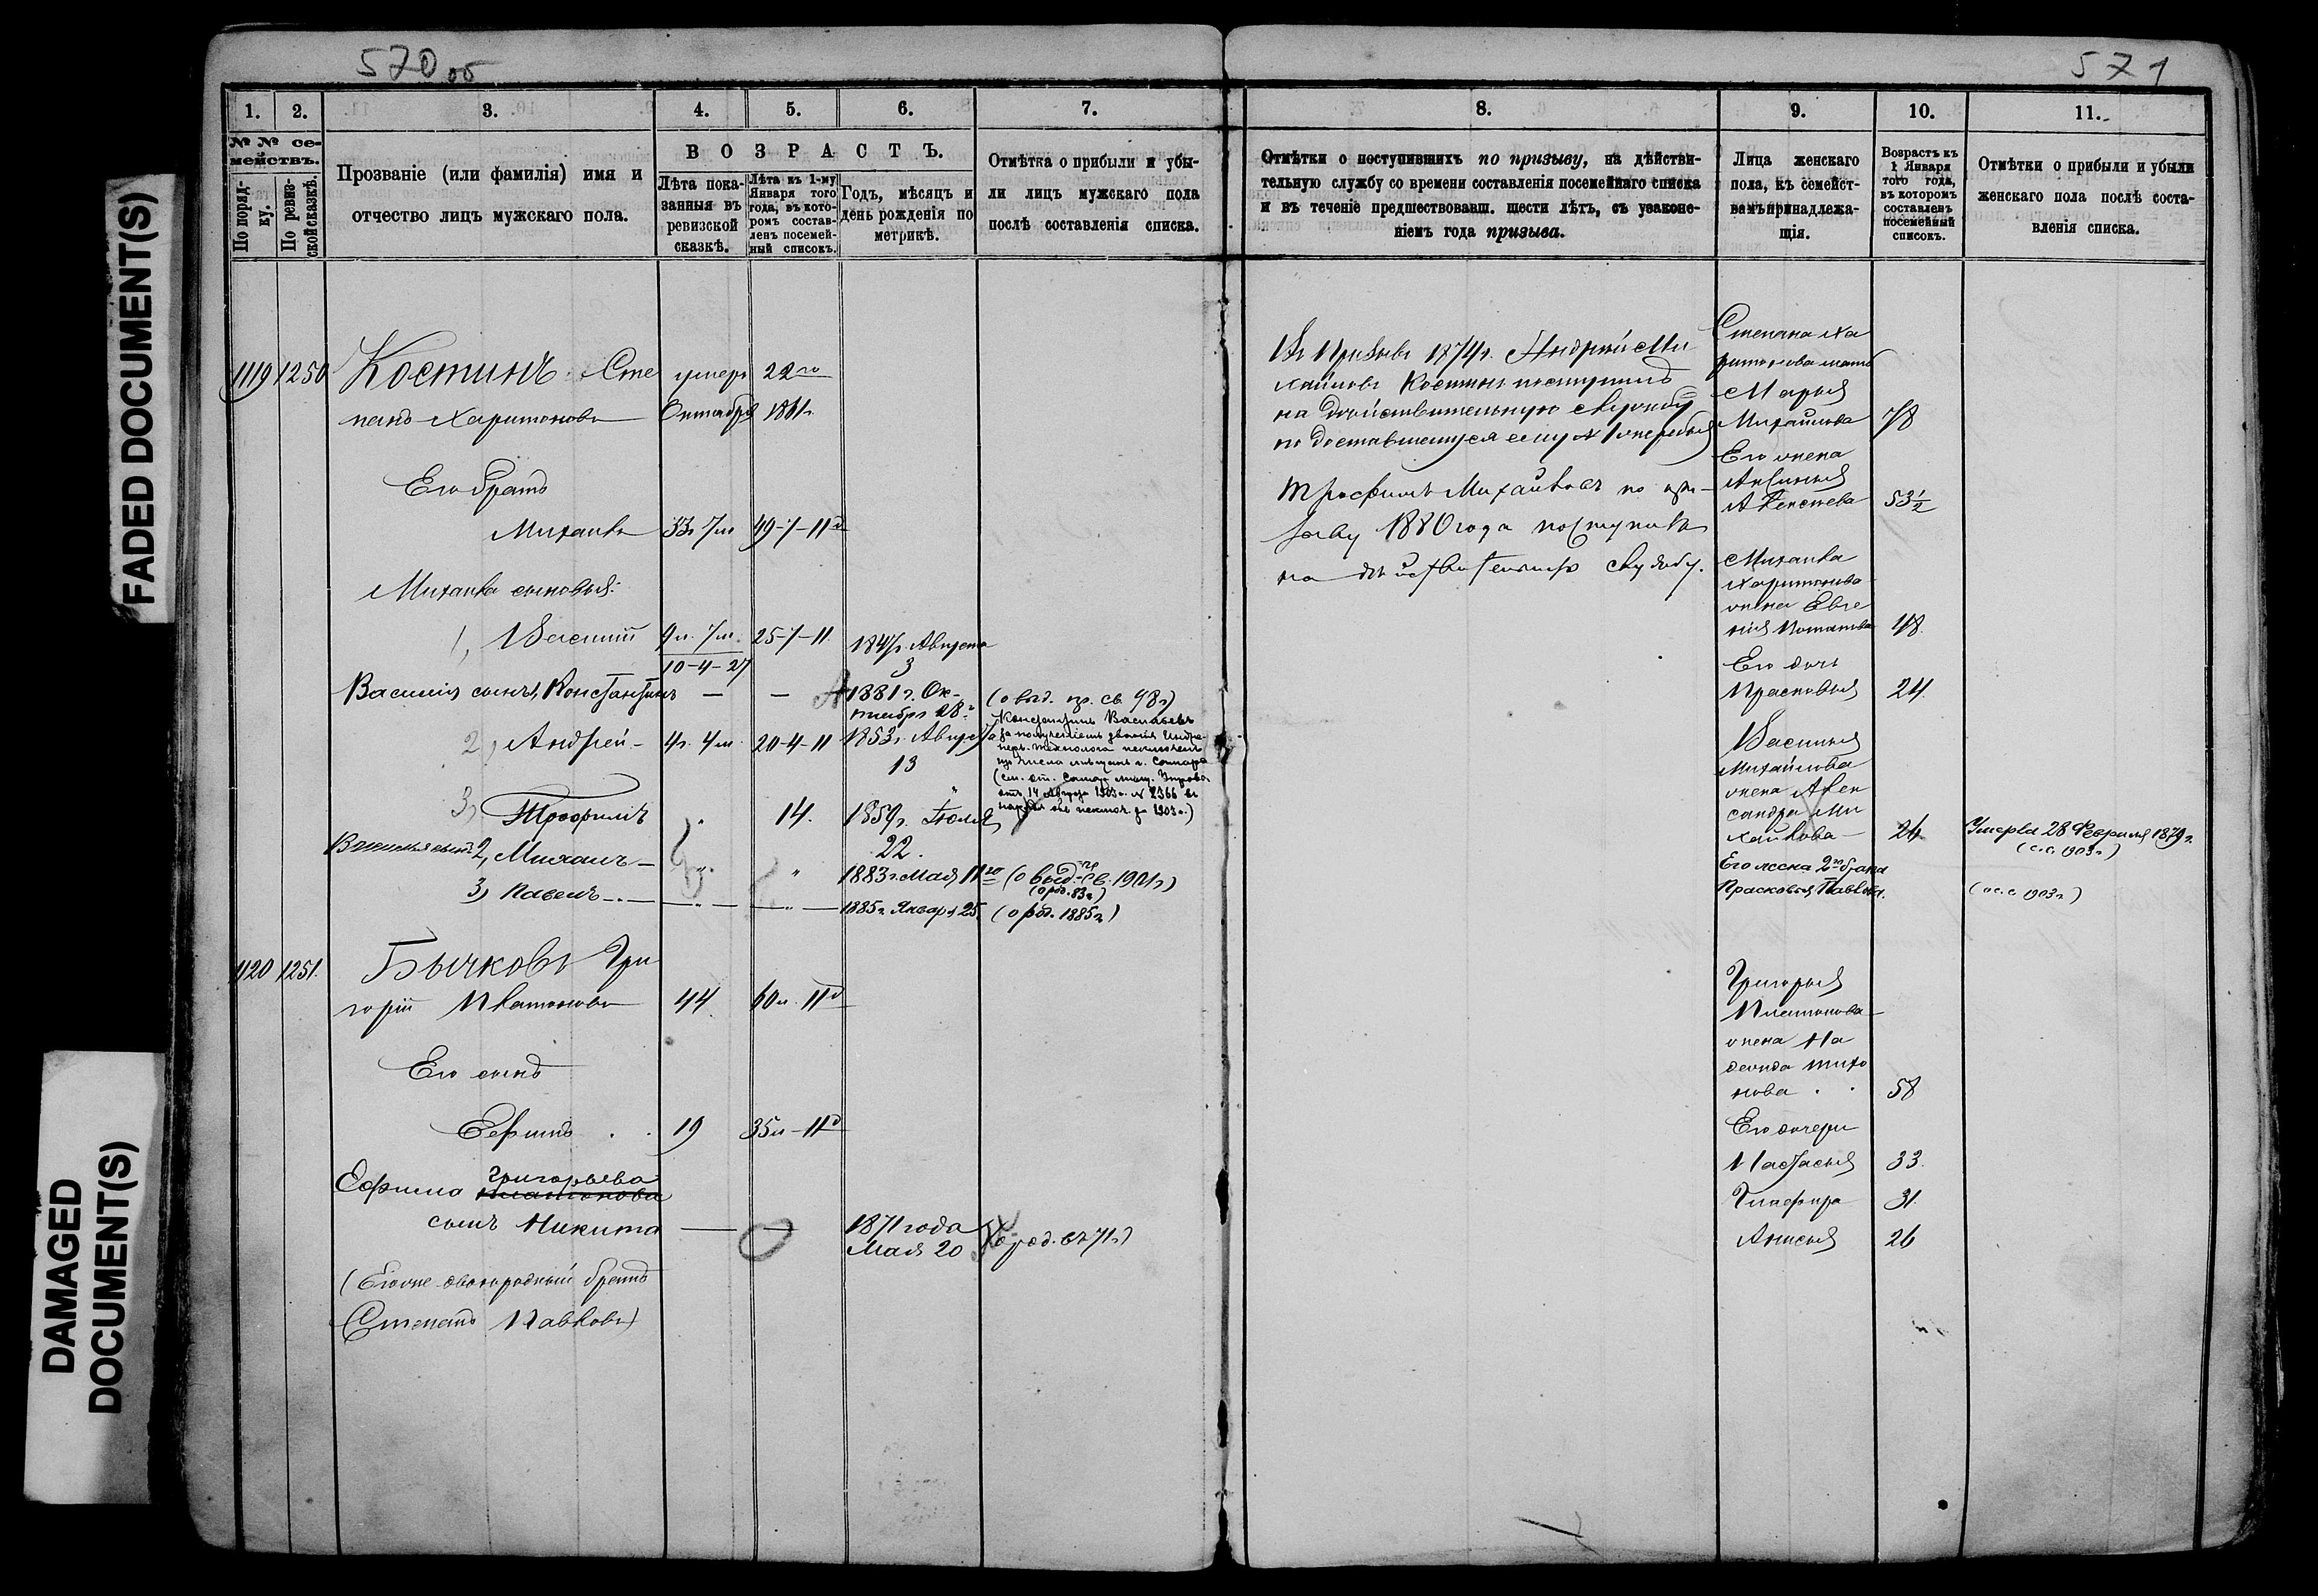 570 об
571
FADED DOCUMENT(S)
DAMAGED
DOCUMENT(S)
1. 2. 3. 4. 5. 6. 7.
№ № се-
мействъ.
По поряд-
ку.
По ревиз-
ской сказкѣ.
Прозваніе (или фамилія) имя и
отчество лицъ мужскаго пола.
ВОЗРАСТЪ.
Лѣта пока-
занныя въ
ревизской
сказкѣ.
Лѣта къ 1-му
Января того
года, въ кото-
ромъ состав-
ленъ посемей-
ный списокъ.
Годъ, мѣсяцъ и
день рожденія по
метрикѣ.
Отмѣтка о прибыли и убы-
ли лицъ мужскаго пола
послѣ составленія списка.
1119 1250 Костинъ Сте умеръ 22го
панъ Харитоновъ Октября 1861г.
Его братъ
Михаилъ 33г 7м 49-7-11д
Михаила сыновья:
1, Василій 9л. 7м. 25-7-11 1847г. Августа
10-4-27 3
Василія сынъ 1, Константинъ — — 1881 г. Ок-
тября 28го
(о выд. пр. св. 98г)
2, Андрей 4г. 4м. 20-4-11 1853г. Августа
13
Константинъ Васильевъ
за полученіемъ званія Инже-
неръ-технолога исключенъ
изъ числа мѣщанъ г. Самары
(см. от. Самар. мѣщ. Управы
отъ 14 Августа 1903 г. № 2366 въ
нарядѣ объ исключ. за 1903 г.)
3, Трофимъ " 14. 1859г. Іюля
22.
Василья сынъ 2, Михаилъ — " " 1883г. Мая 11го (о выд. пр. св. 1901г)
(о род. 83г.)
3) Павелъ — 1885г. Января 25. (о род. 1885г.)
1120 1251. Бычковъ Гри
горій Платоновъ 44 60л. 11д
Его сынъ
Ефимъ 19 35л-11д
Григорьева
Ефима Платонова
сынъ Никита — — 1871 года
Мая 20 (о род. въ 71г.)
(Его же двоюродный братъ
Степанъ Павловъ)
8. 9. 10. 11.
Отмѣтки о поступившихъ по призыву, на дѣйстви-
тельную службу со времени составленія посемейнаго списка
и въ теченіе предшествовавш. шести лѣтъ, съ указане-
ніемъ года призыва.
Лица женскаго
пола, къ семейст-
вамъ принадлежа-
щія.
Возрастъ къ
1 Января
того года,
въ которомъ
составленъ
посемейный
списокъ.
Отмѣтки о прибыли и убыли
женскаго пола послѣ соста-
вленія списка.
Въ Призывъ 1874г. Андрей Ми
хайловъ Костинъ поступилъ
на дѣйствительную службу
по доставшемуся ему №
Трофимъ Михайловъ по при-
зыву 1880 года поступилъ
на дѣйствительную службу.
Степана Ха
ритонова мать
Марья
Михайлова 78
Его жена
Аксинья
Алексѣева 53½
Михаила
Харитонова
жена Евге
нія Потапова 48.
Его дочь
Прасковья 24.
Василья
Михайлова
жена Алек
сандра Ми
хайлова — 24 Умерла 28 Февраля 1879г.
(с.с. 1903г.)
Его жена 2го брака
Прасковья Павлова. (с.с. 1903г.)
Григорья
Платонова
жена На
дежда Тихо
нова 58
Его дочери
Настасья 33.
Глафира 31.
Анисья 26